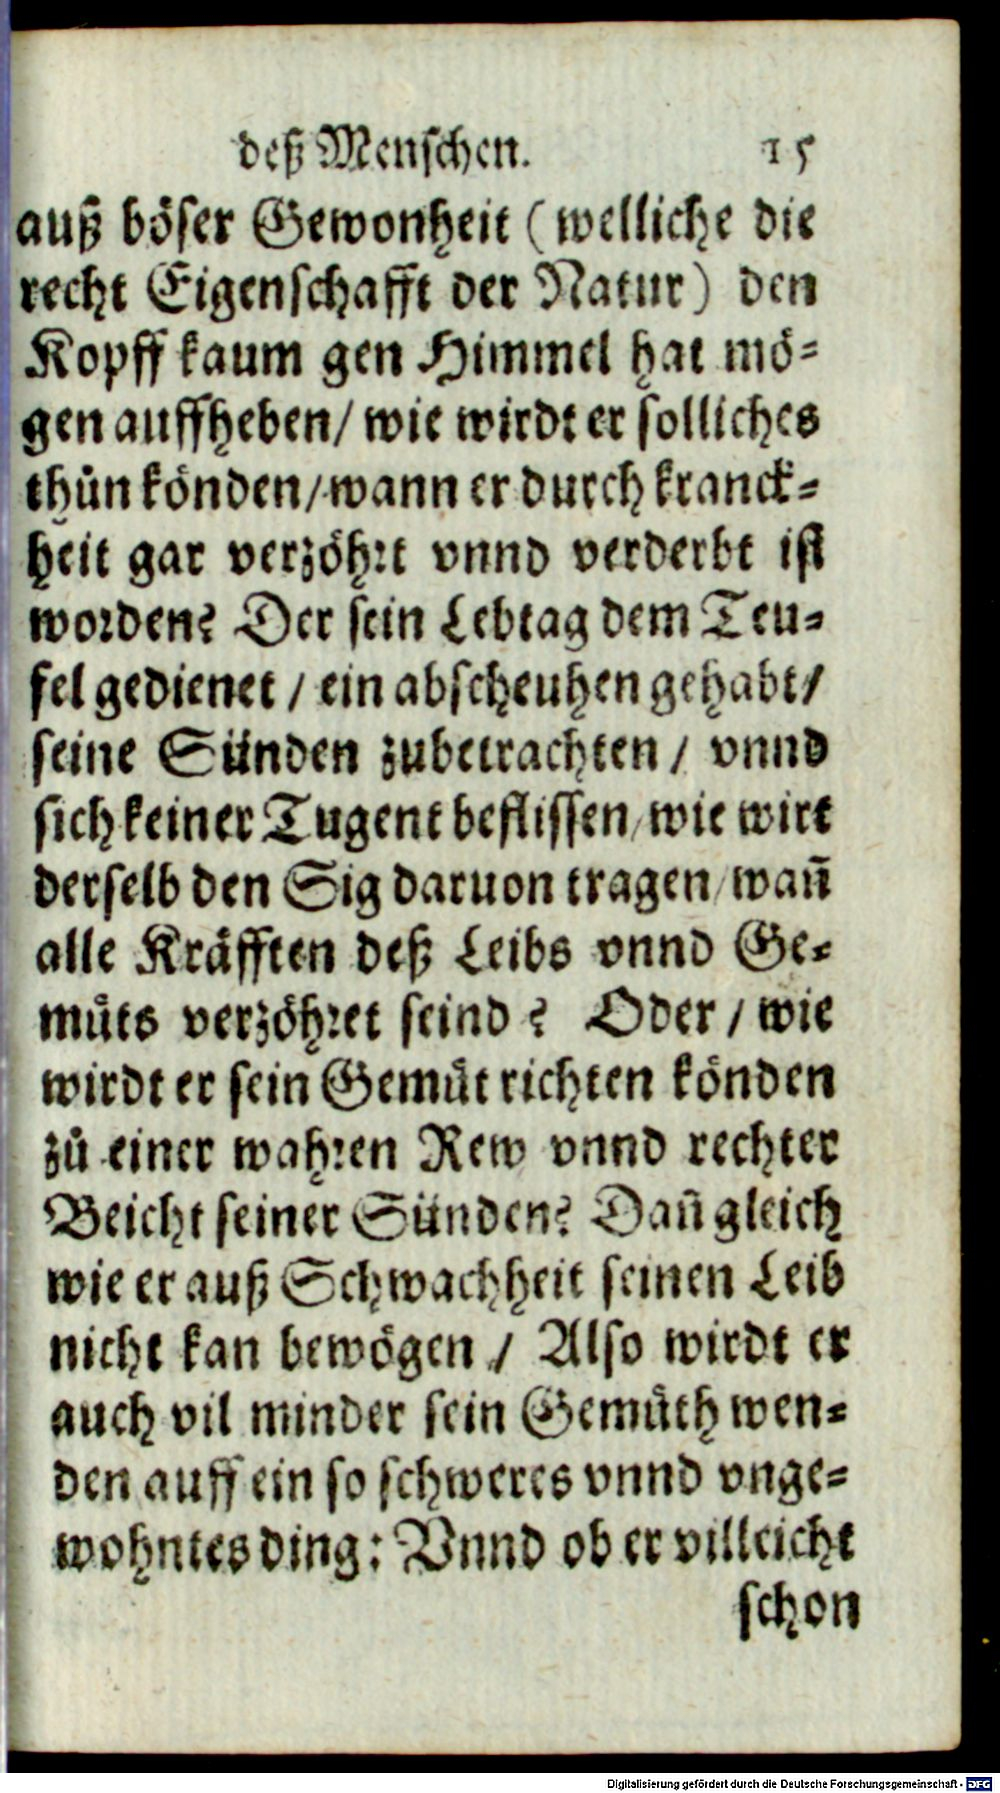 deß Menschen. 15
auß böser Gewonheit (welliche die
recht Eigenschafft der Natur) den
Kopff kaum gen Himmel hat mö-
gen auffheben/ wie wirdt er solliches
thůn könden/ wann er durch kranck-
heit gar verzöhrt vnnd verderbt ist
worden? Der sein Lebtag dem Teu-
fel gedienet / ein abscheuhen gehabt/
seine Sünden zubetrachten / vnnd
sich keiner Tugent beflissen/ wie wirt
derselb den Sig daruon tragen/ wañ
alle Kräfften deß Leibs vnnd Ge-
müts verzöhret seind? Oder / wie
wirdt er sein Gemüt richten könden
zů einer wahren Rew vnnd rechter
Beicht seiner Sünden? Dañ gleich
wie er auß Schwachheit seinen Leib
nicht kan bewögen / Also wirdt er
auch vil minder sein Gemüth wen-
den auff ein so schweres vnnd vnge-
wohntes ding: Vnnd ob er villeicht
schon
Digitalisierung gefördert durch die Deutsche Forschungsgemeinschaft - DFG